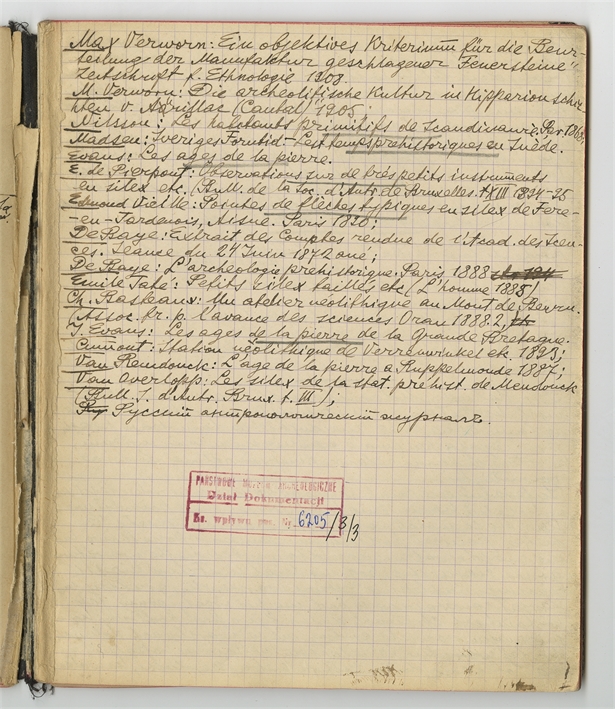 Max Verworn: Ein objektives Kriterium für die Beur-
teilung der Manufaktur geschlagener Feuersteine"
Zeitschrift f. Ethnologie 1908.
M. Verworn: Die archeolitische Kultur in Hipparion schich
ten v. Aurillac (Cantal)" 1905;
Nilsson: Les habitants primitifs de Scandinavie. Par. 1868;
Madsen: Sveriges Forntid - Les temps prehistoriques en Suède.
Evans: Les ages de la pierre.
E. de Pierpont: Observations sur de très petits instruments
en silex etc. (Bull. de la Soc. d'Antr. de Bruxelles. t XIII 1894-95
Edmond Vielle: Pointes de flèches typiques en silex de Fere-
en-Tardenois, Aisne. Paris 1890;
De Baye: Extrait des Comptes rendue de l'Acad. des Scen-
ces. Seance du 24 Juin 1872 ané;
De Baye: L'archeologie prehistorique. Paris 1888
Emile Taté: Petits silex taillés etc. (L'homme 1885)
Ch. Rasteaux: Un atelier néolithique au Mont de Beuvn.
(Assoc. fr. p. l'avance des sciences Oran 1888.2,
J. Evans: Les ages de la pierre de la Grande Bretagne.
Cumont: Station néolithique de Verrewinkel etc. 1893;
Van Remdonck: L'age de la pierre a Ruppelmonde 1887;
Van Overlopp: Les silex de la stat. prehist. de Mendonck
(Bull. S. d'Antr. Brux. t. III);
Русскій антропологическій журналъ.
PAŃSTWOWE MUZEUM ARCHEOLOGICZNE
Dział Dokumentacji
Nr. wpływu 6205/8/3